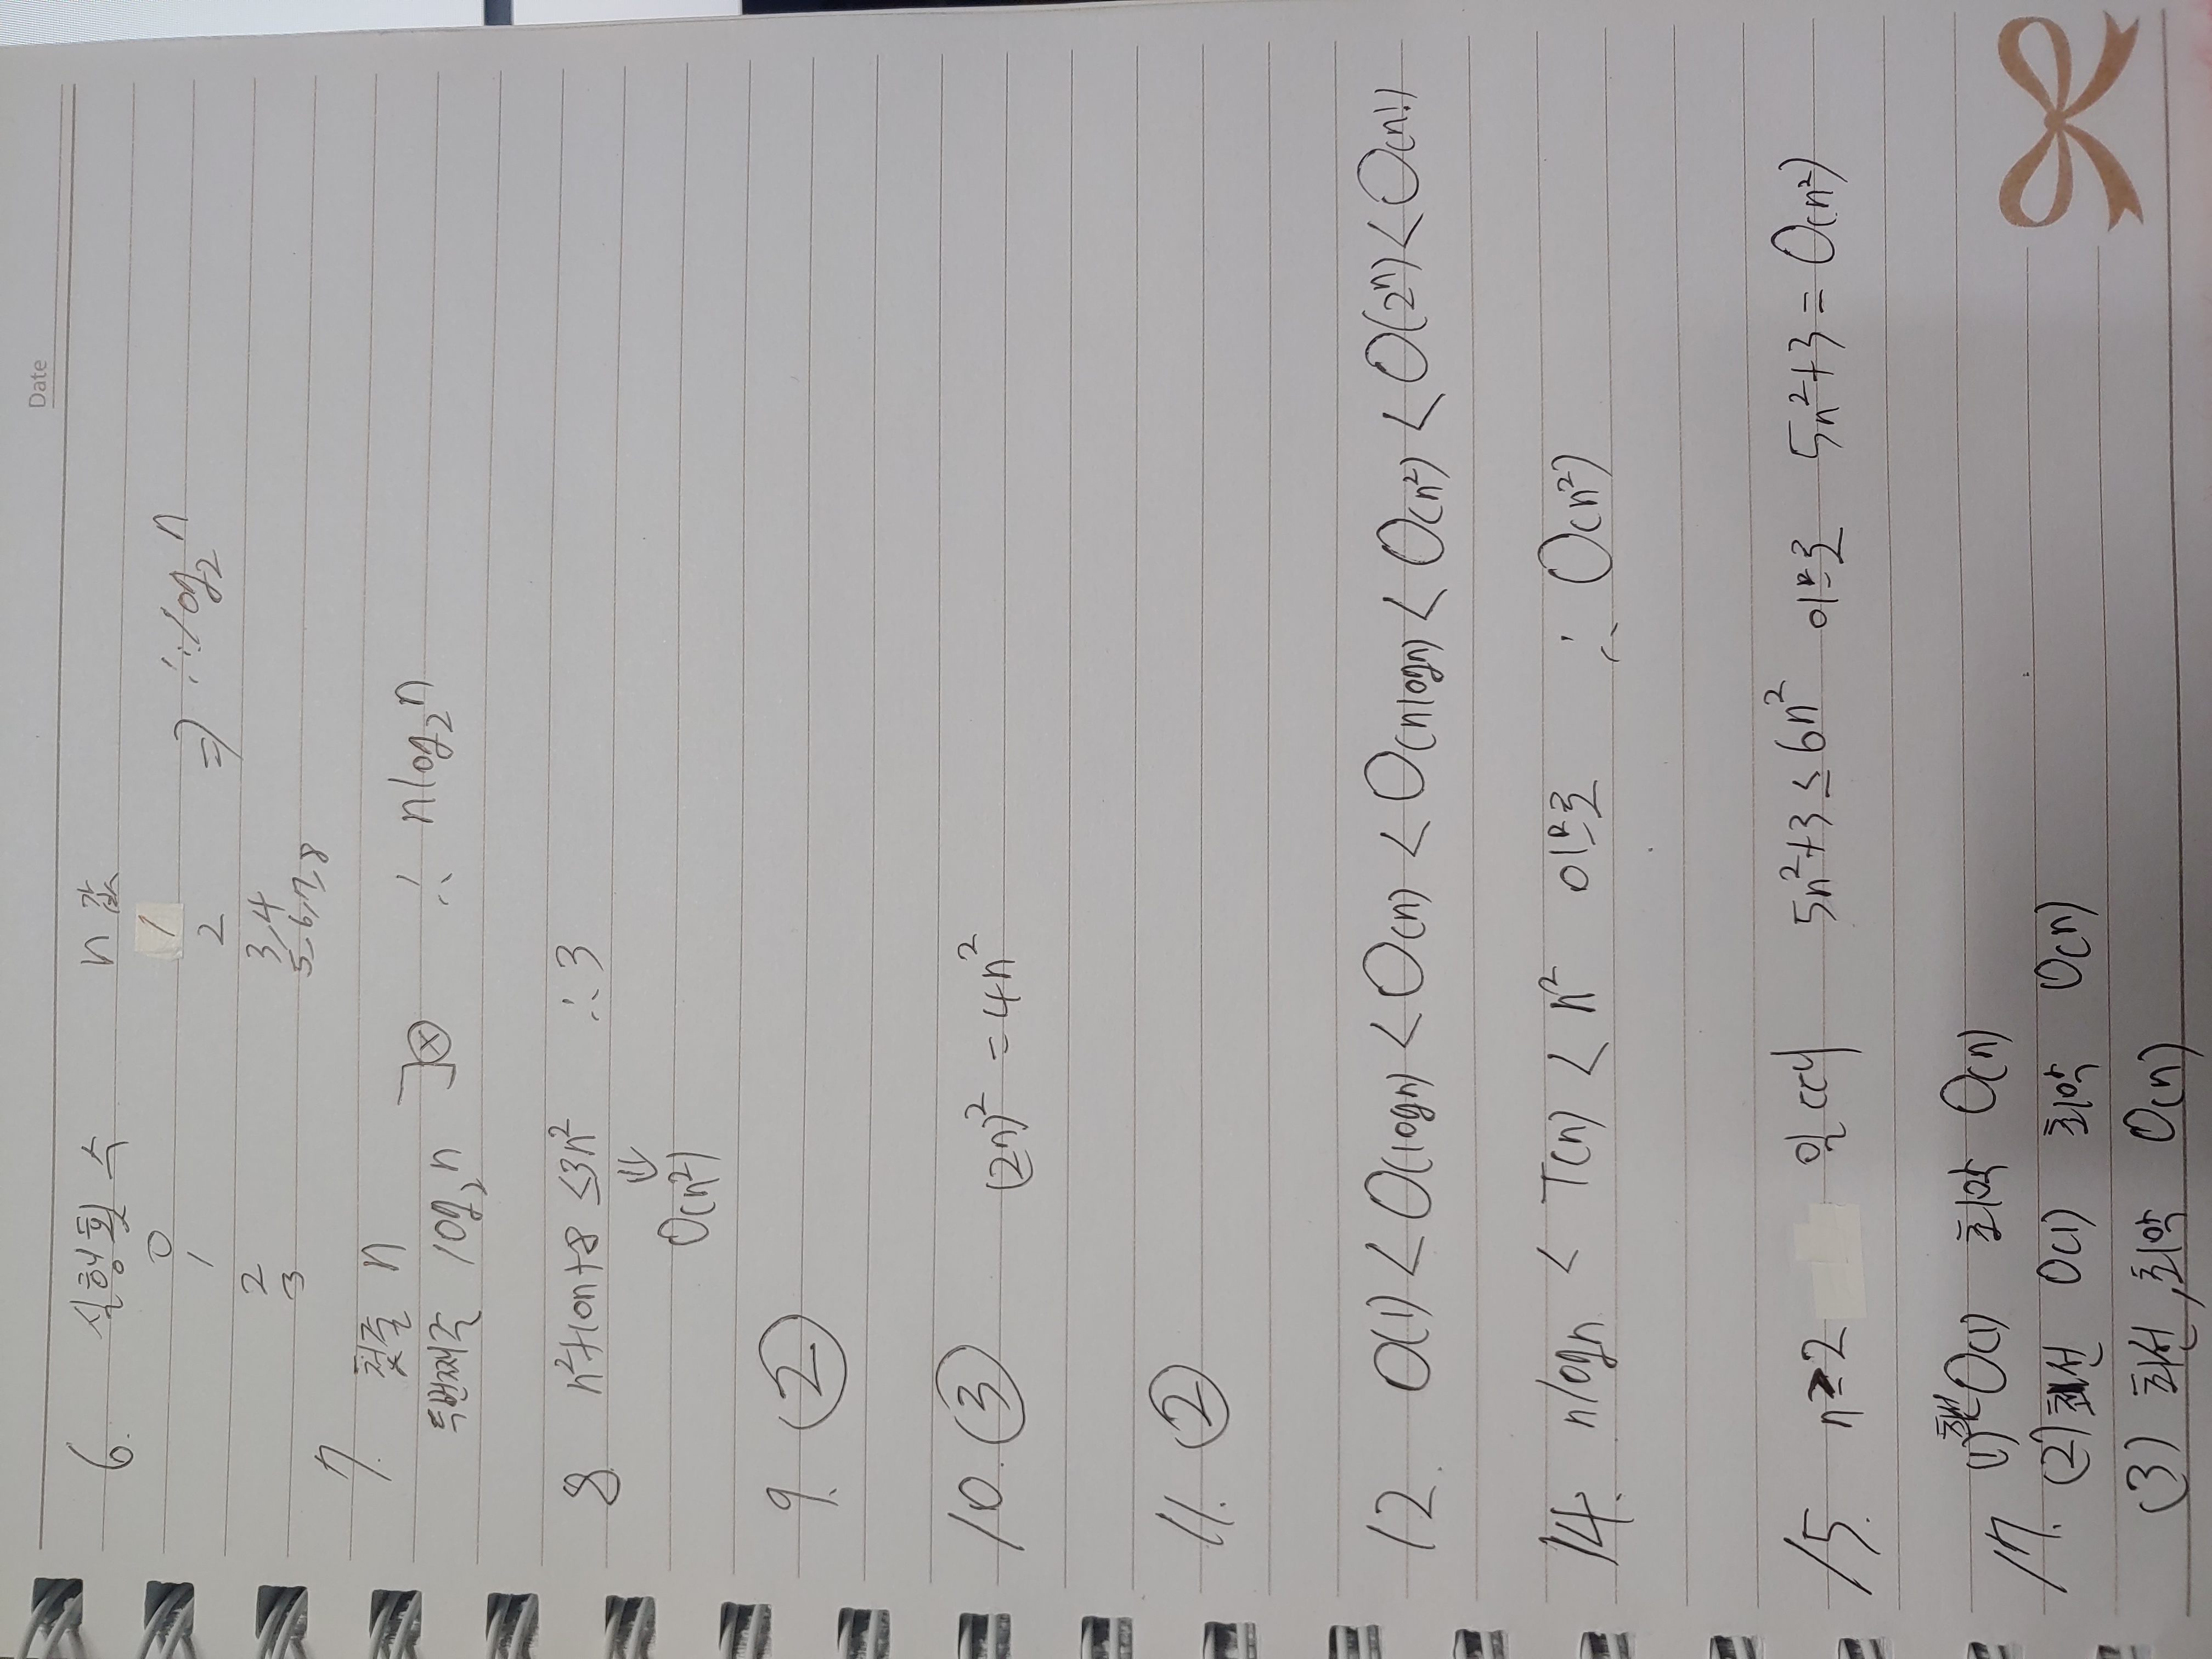 Date
6. 실행횟수 n값
0 1
1 2 ⇒ ∴ log₂n
2 3,4
3 5,6,7,8
7. 첫줄 n
두번째줄 log₂n ] ⊗ ∴ nlog₂n
8 n²+10n+8 ≤3n² ∴ 3
⇓
O(n²)
9. ②
10. ③ (2n)² = 4n²
11. ②
12. O(1) < O(logn) < O(n) < O(nlogn) < O(n²) < O(2ⁿ) < O(n!)
14. nlogn < T(n) < n² 이므로 ∴ O(n²)
15. n≥2 일 때 5n²+3 ≤ 6n² 이므로 5n²+3 = O(n²)
17. (1) 최선 O(1) 최악 O(n)
(2) 최선 O(1) 최악 O(n)
(3) 최선, 최악 O(n)